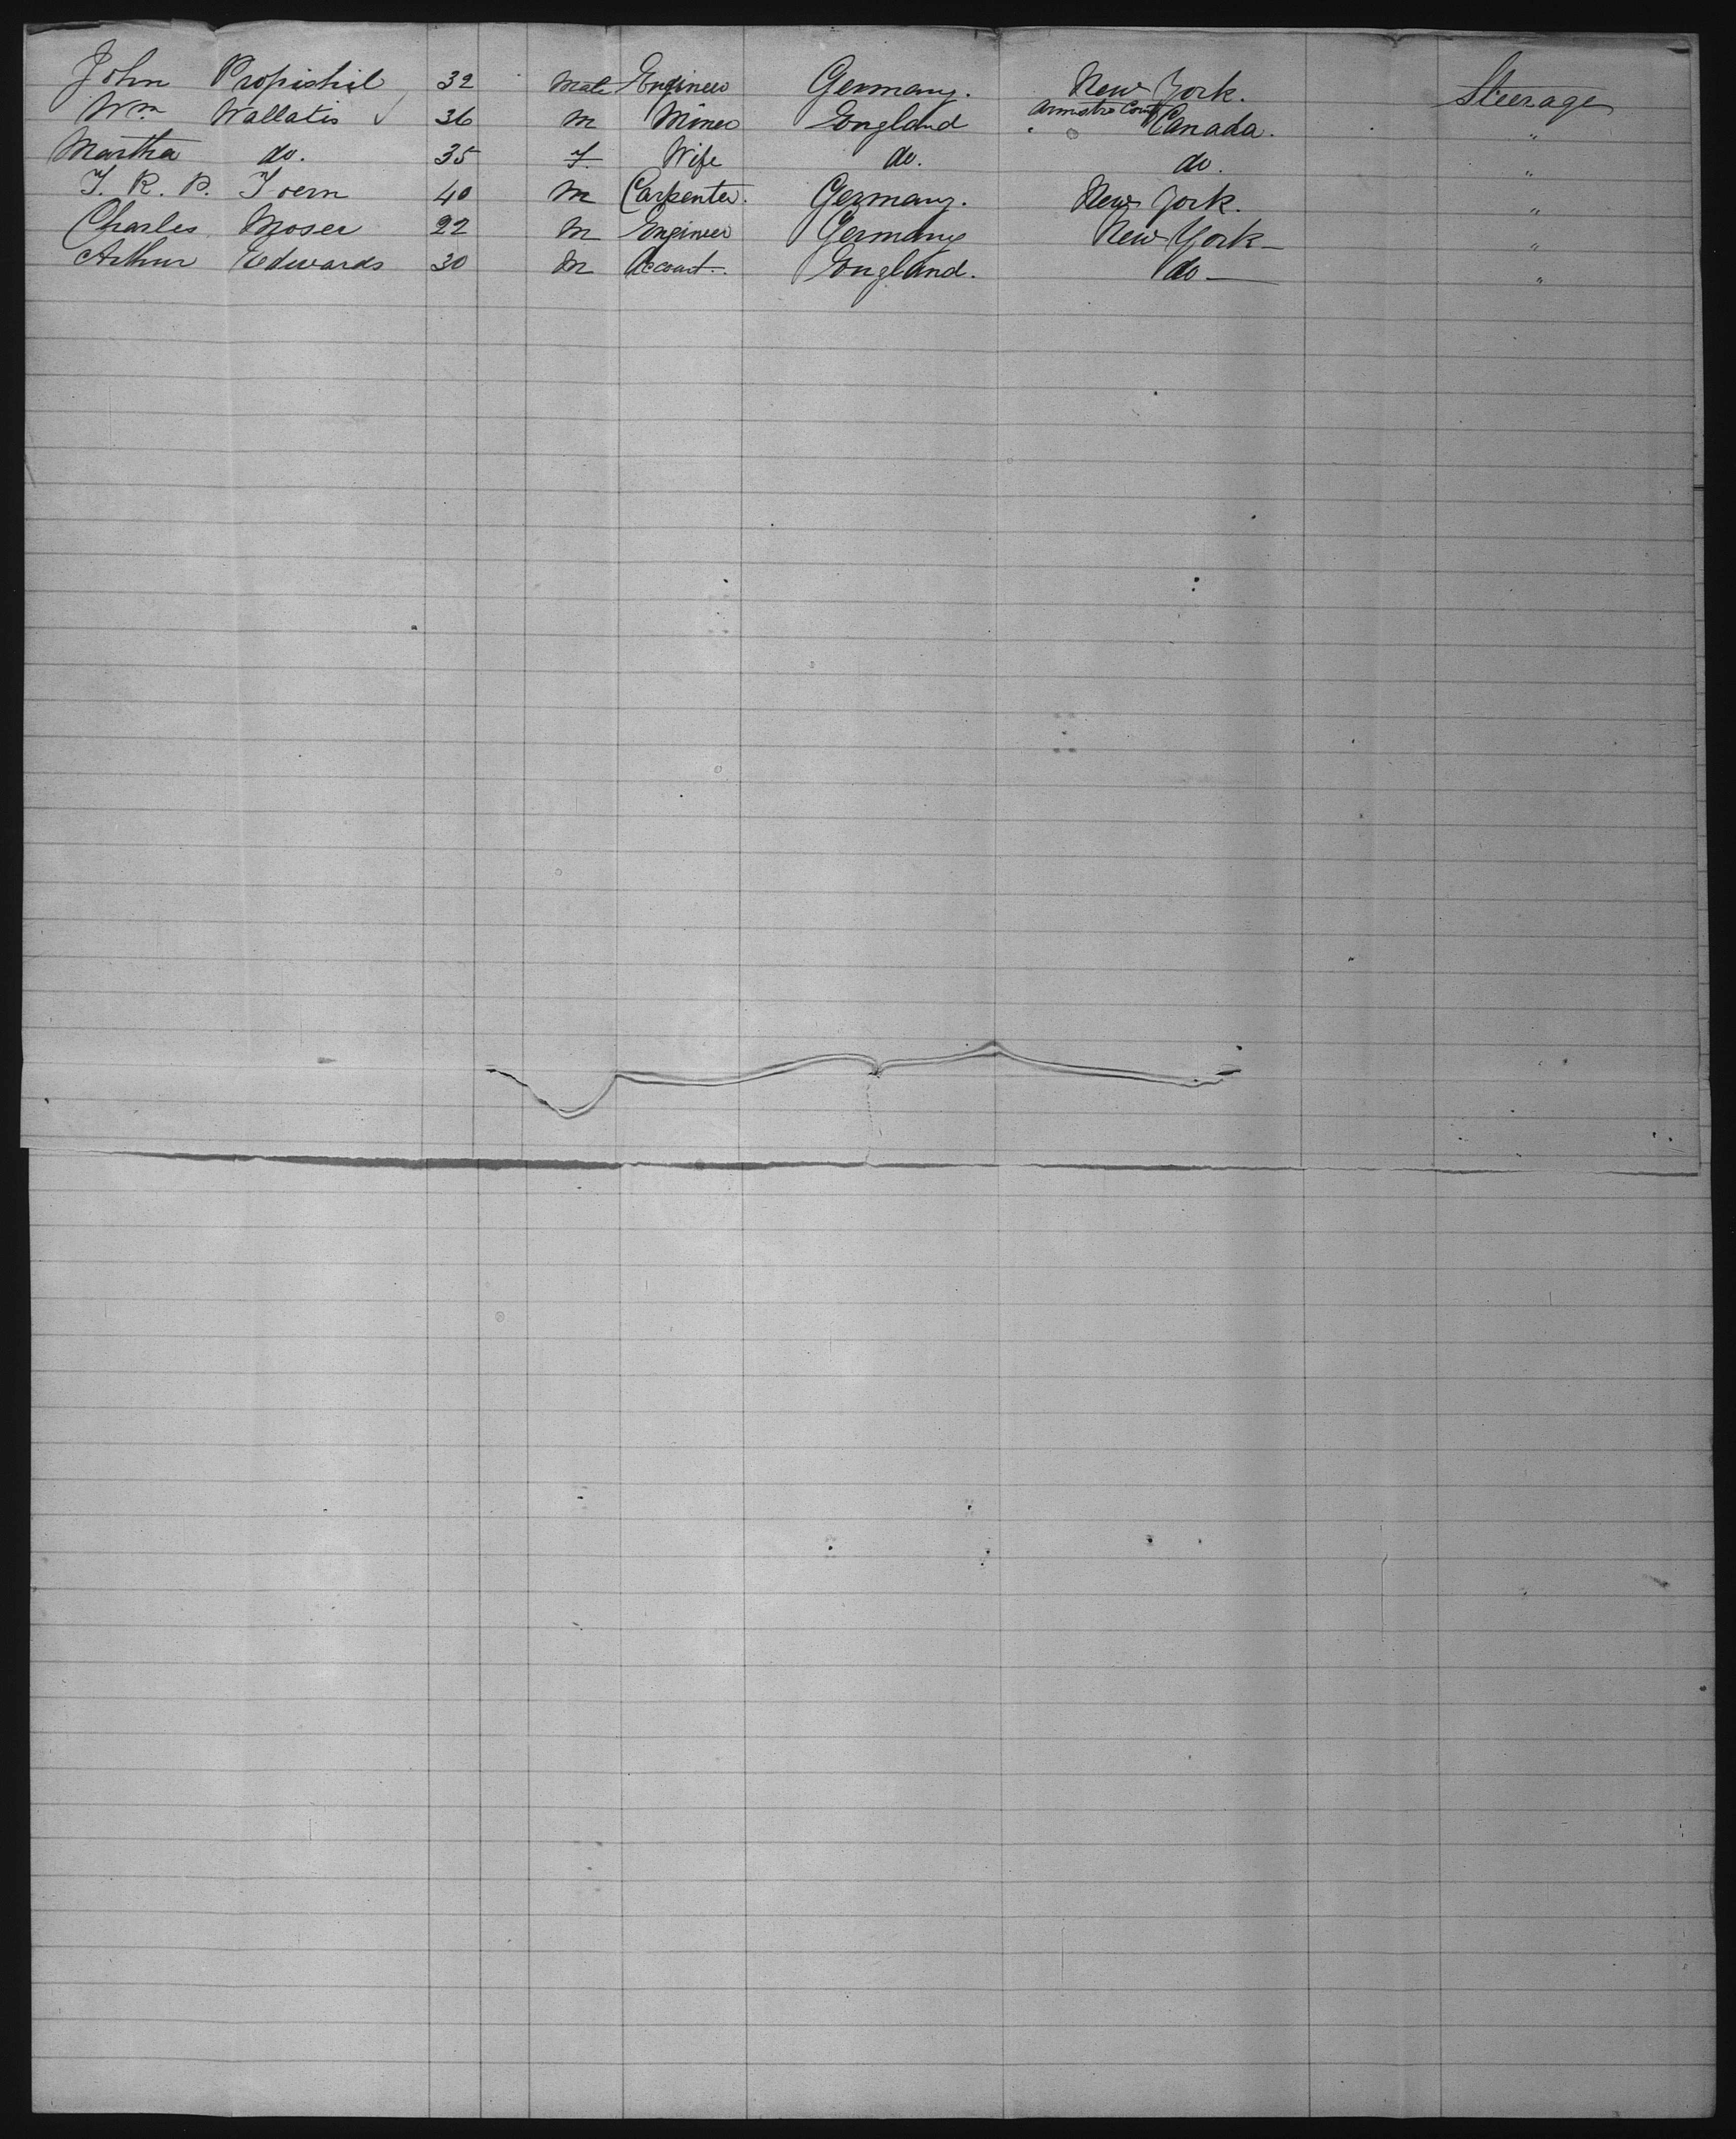 John Propischil 32 Male Engineer Germany. New York. Steerage
Wm Wallatis 36 M Miner England Canada. "
Martha do. 35 F Wife do. do. "
J. R. P. Joern 40 M Carpenter. Germany. New York. "
Charles Moser 22 M Engineer Germany New York "
Arthur Edwards 30 M Account. England. do "